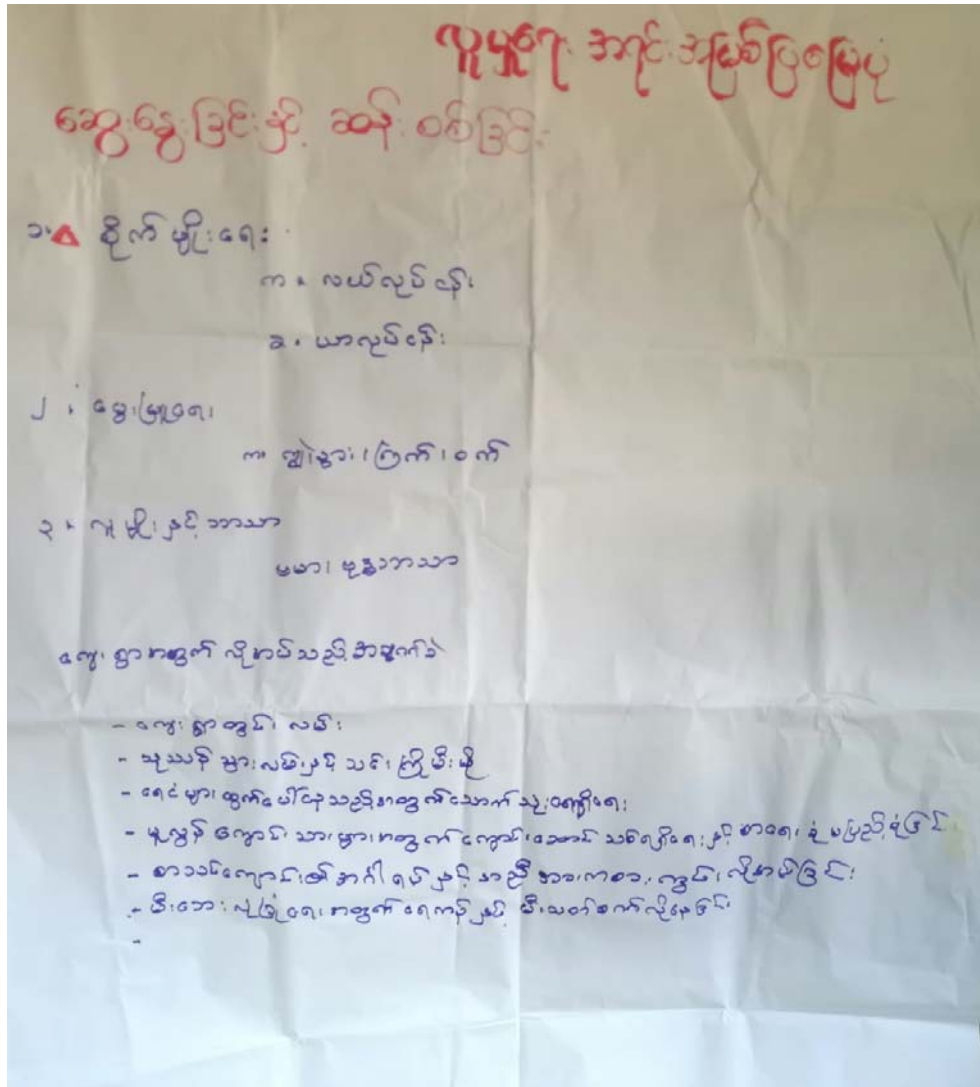 လူမှုရေး အရင်းအမြစ်ပြမြေပုံ
ဆွေးနွေးခြင်းနှင့် ဆန်းစစ်ခြင်း
၁။ စိုက်ပျိုးရေး
က။ လယ်လုပ်ငန်း
ခ။ ယာလုပ်ငန်း
၂။ မွေးမြူရေး
က။ ကျွဲနွား၊ ကြက်၊ ဝက်
၃။ လူမျိုးနှင့်ဘာသာ
ဗမာ၊ ဗုဒ္ဓဘာသာ
ကျေးရွာအတွက် လိုအပ်သည့်အချက်
- ကျေးရွာတွင်း လမ်း
- သုဿန်သွားလမ်းနှင့် သင်္ဂြိုဟ်
- ရေငံများထွက်ပေါ်နေသည့်အတွက်သောက်သုံးရေရရှိရေး
- မူလွန်ကျောင်းသားများအတွက် ကျောင်းဆောင်သစ်ရရှိရေးနှင့်
- စာသင်ကျောင်း အင်္ဂါရပ်နှင့်အညီ အားကစားကွင်း လိုအပ်ခြင်း
- မီးဘေးလုံခြုံရေးအတွက် ရေကန်နှင့် မီးသတ်စက်လိုနေခြင်း
-